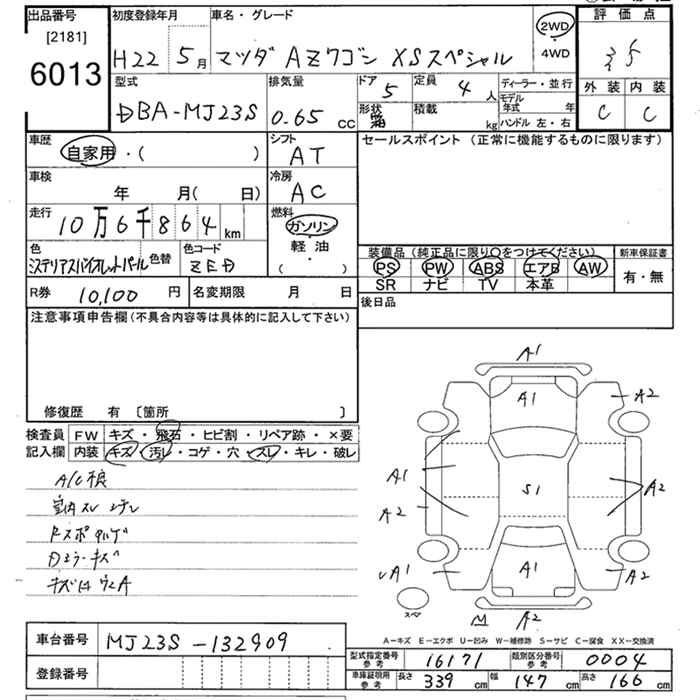 出品番号
[2181]
6013
初度登録年月
H22 5月
車名・グレード
マツダ AZワゴン XSスペシャル
2WD
・
4WD
評価点
3.5
外装 内装
C C
型式
DBA-MJ23S
排気量
0.65 CC
ドア
5
定員
4人
形状
積載
kg
ディーラー・並行
モデル年式 年
ハンドル 左・右
車歴
自家用・( )
シフト
AT
セールスポイント (正常に機能するものに限ります)
車検
年 月( 日)
冷房
AC
走行
10万6千864km
燃料
ガソリン
・
軽油
・
( )
色
ミステリアスバイオレットパール
色替
色コード
ZED
装備品(純正品に限り○をつけてください)
PS PW ABS エアB AW
SR ナビ TV 本革
新車保証書
有・無
R券 10,100円
名変期限 月 日
後日品
注意事項申告欄(不具合内容等は具体的に記入して下さい)
修復歴 有 〔箇所 〕
検査員
記入欄
FW キズ・飛石・ヒビ割・リペア跡・×要
内装 キズ・汚レ・コゲ・穴・スレ・キレ・破レ
A/C不良
キズは
A1
A1
A2
A1
A2
S1
A2
A1
A1
A2
スペア
A2
A−キズ E−エクボ U−凹み W−補修跡 S−サビ C−腐食 XX−交換済
車台番号 MJ23S-132909
登録番号
型式指定番号
参考
16171
類別区分番号
参考
0004
車庫証明用
参考
長さ 339cm
幅 147cm
高さ 166cm